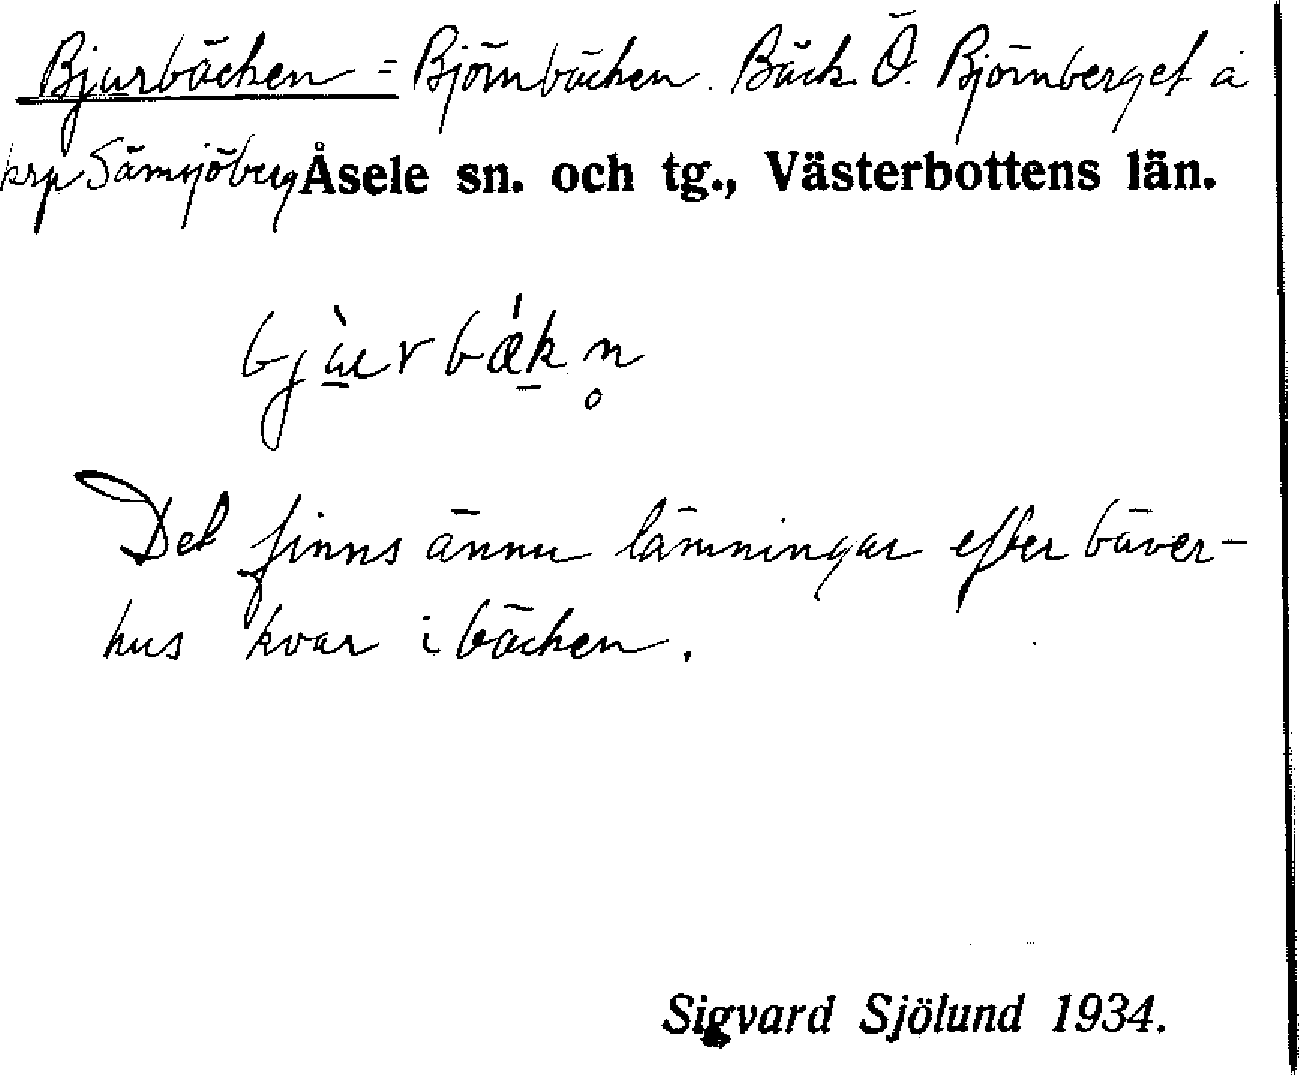 Bjurbäcken = Björnbäcken. Bäck Ö. Björnberget å
krp Sämsjöberg Åsele sn. och tg., Västerbottens län.
bjùrbǽkn̥
Det finns ännu lämningar efter bäver-
hus kvar i bäcken.
Sigvard Sjölund 1934.